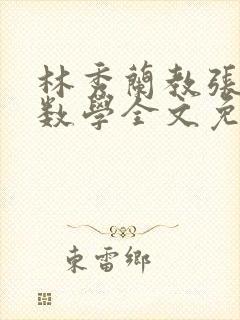 林秀蘭教張
数學全文免
東雷鄉